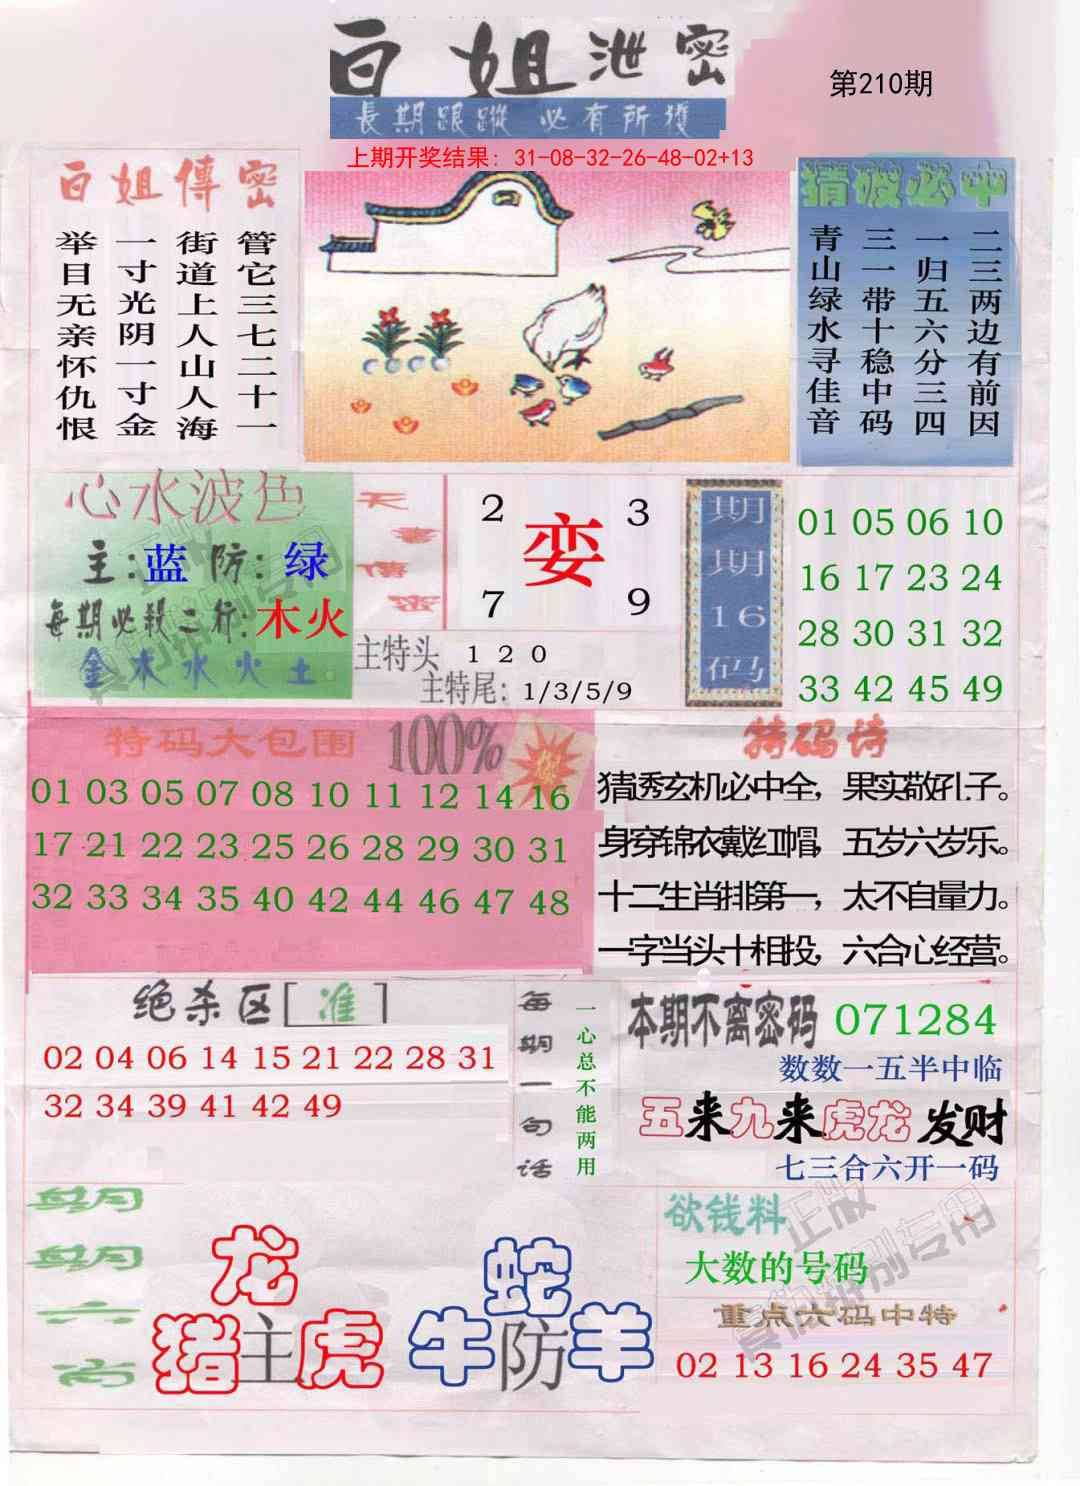 白姐泄密
第210期
長期跟蹤 必有所獲
上期开奖结果：31-08-32-26-48-02+13
白姐傳密
管它三七二十一
街道上人山人海
一寸光阴一寸金
举目无亲怀仇恨
猜破必中
二三两边有前因
一归五六分三四
三一带十稳中码
青山绿水寻佳音
心水波色
主:蓝 防:绿
每期必殺二行:木火
金木水火土
天書傳密
2 3
娈
7 9
主特头 1 2 0
主特尾：1/3/5/9
期期16码
01 05 06 10
16 17 23 24
28 30 31 32
33 42 45 49
特码大包围 100%
01 03 05 07 08 10 11 12 14 16
17 21 22 23 25 26 28 29 30 31
32 33 34 35 40 42 44 46 47 48
特码诗
猜透玄机必中全，果实敬孔子。
身穿锦衣戴红帽，五岁六岁乐。
十二生肖排第一，太不自量力。
一字当头十相投，六合心经营。
绝杀区[准]
02 04 06 14 15 21 22 28 31
32 34 39 41 42 49
每期一句话
一心总不能两用
本期不离密码 071284
数数一五半中临
五来九来虎龙发财
七三合六开一码
期期六肖
龙
猪主虎
蛇
牛防羊
欲钱料
大数的号码
重点六码中特
02 13 16 24 35 47